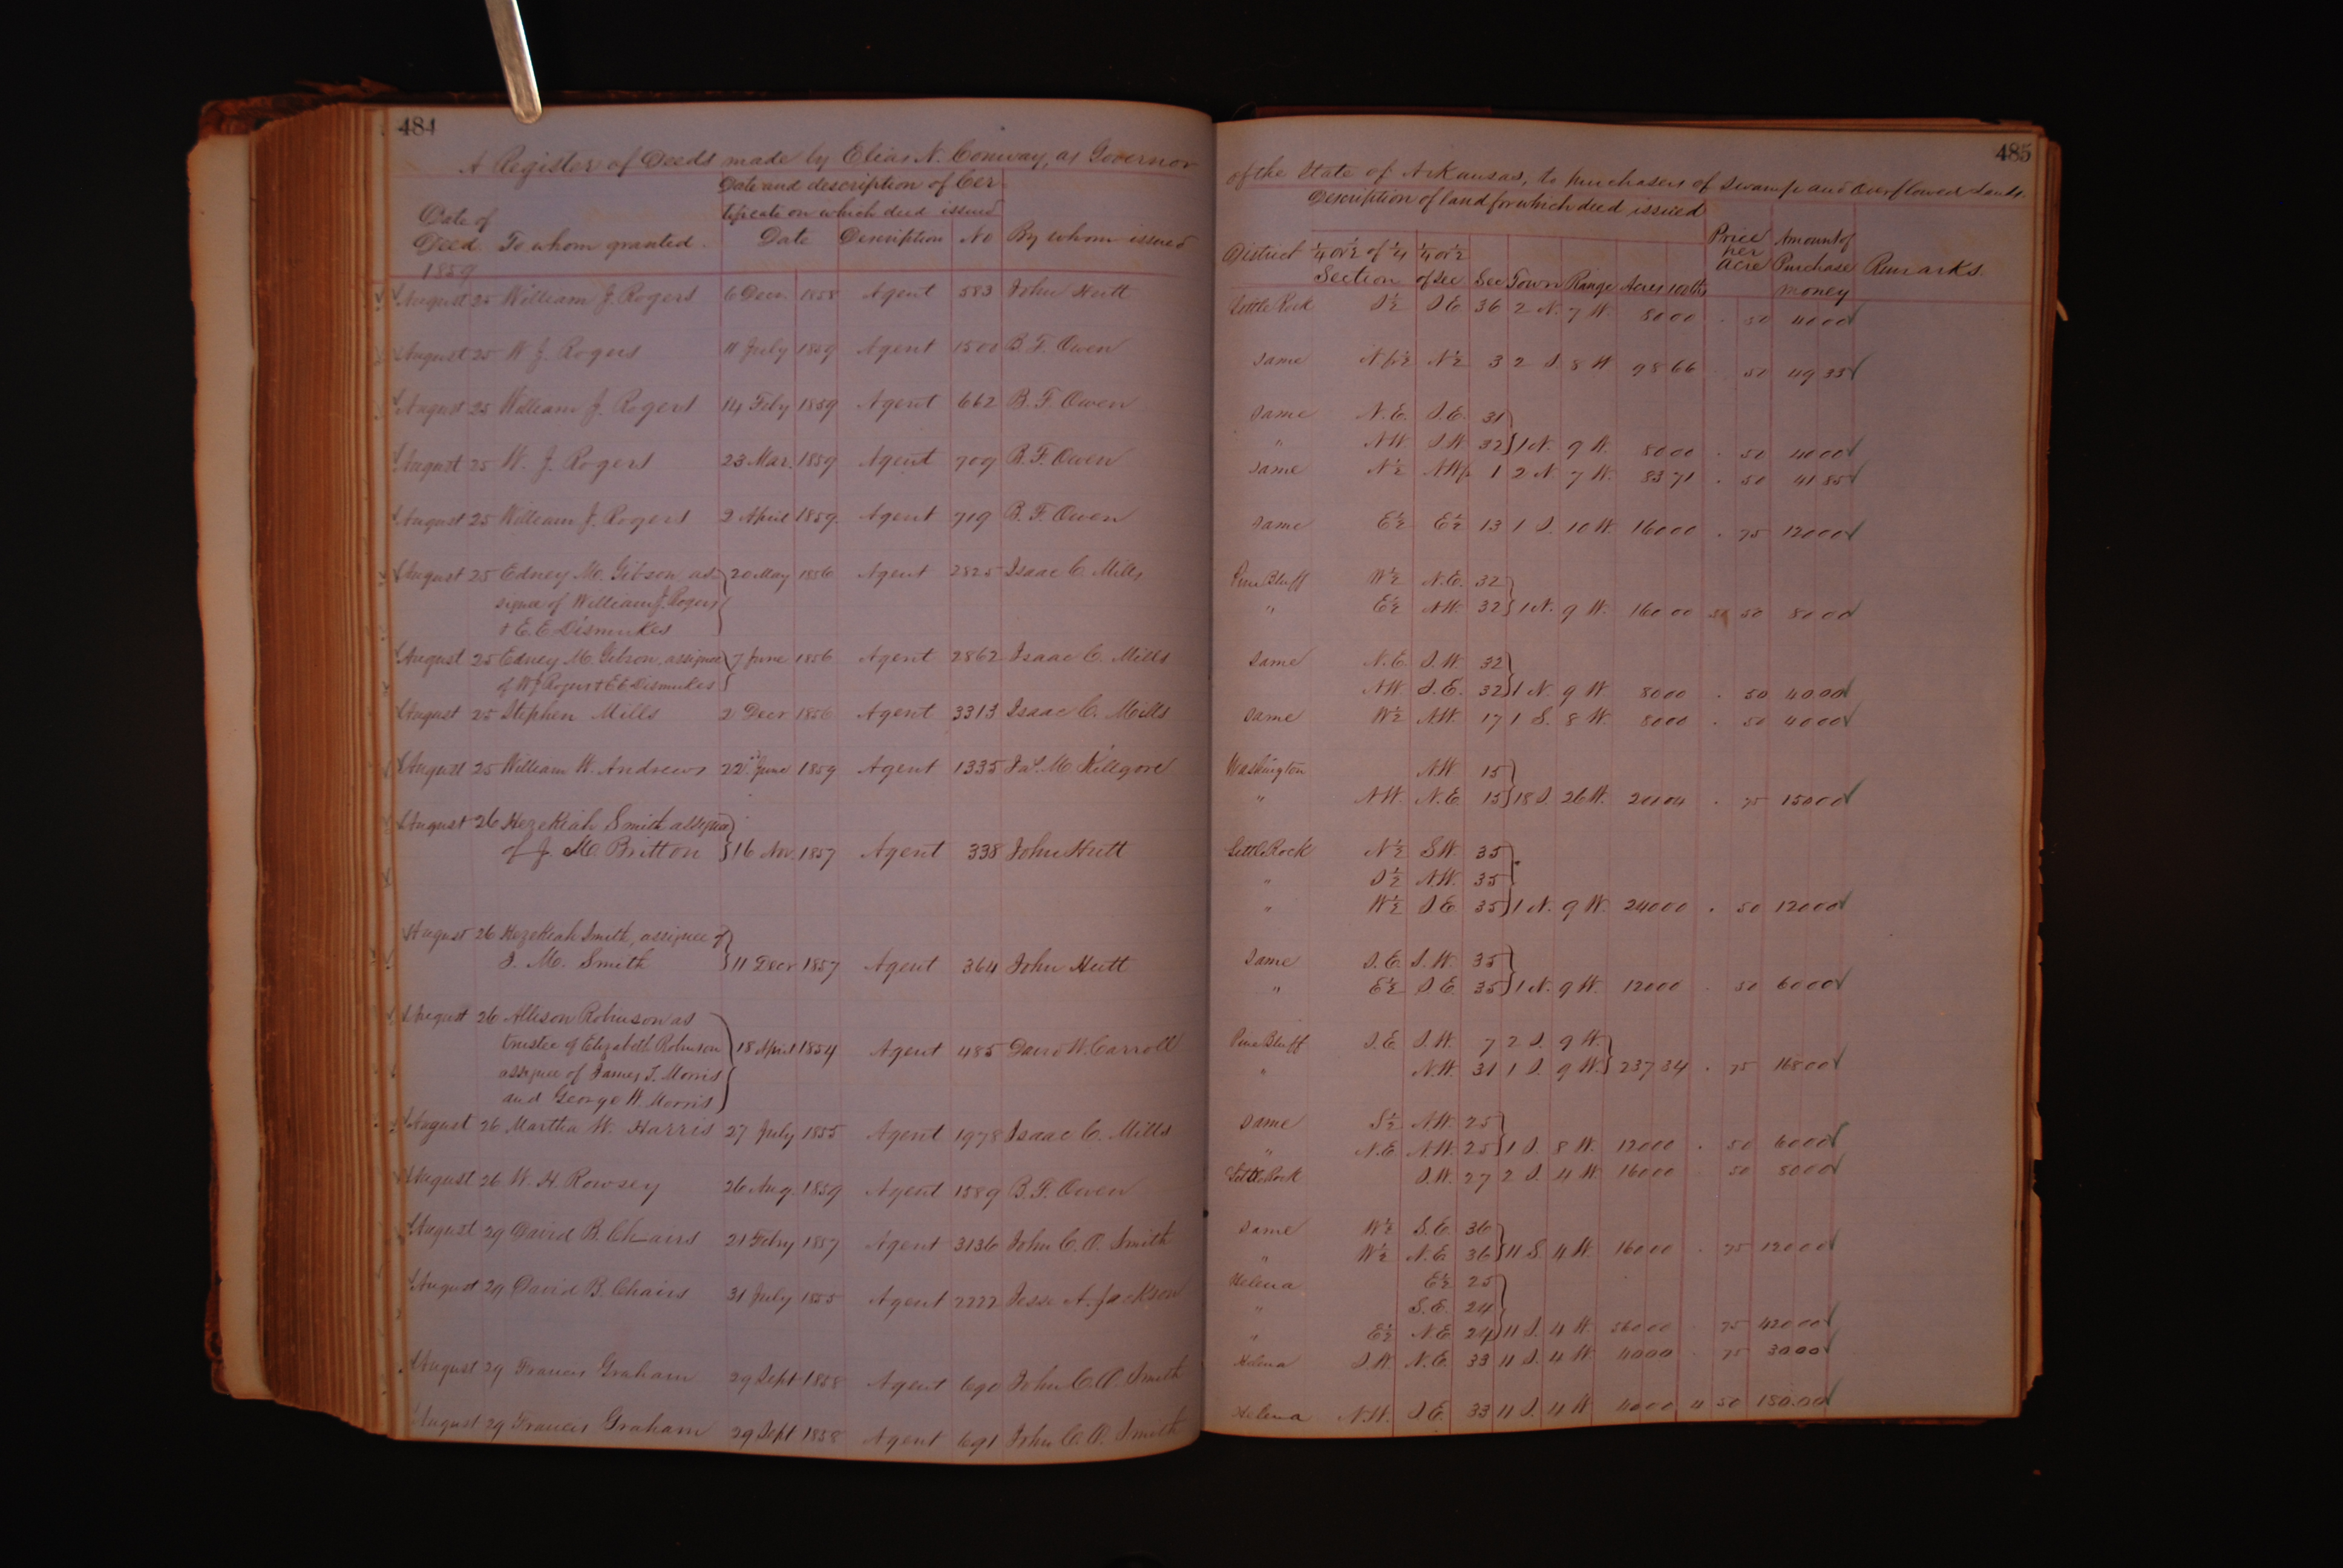 484
A Register of Deeds made by Elias N. Conway, as Governor
Date and description of Cer
tificate on which deed issued
Date of
Deed To whom granted Date Description No By whom issued
1859
August 25 William J. Rogers 6 Decr. 1858 Agent 583 John Hutt
August 25 W J. Rogers 11 July 1859 Agent B. F. Owen
August 25 William J. Rogers 14 Feby 1859 Agent 662 B. F. Owen
August 25 W. J. Rogers 23 Mar. 1859 Agent 709 B. F. Owen
August 25 William J. Rogers 2 April 1859. Agent 719 B. F. Owen
August 25 Edney M. Gibson as 20 May 1856 Agent 2825 Isaac C. Mills
signee of William J. Rogers
& E. E Dismukes
August 25 Edney M. Gibson, assignee 7 June 1856 Agent 2862 Isaac C. Mills
of W J Rogers & E E Dismukes
August 25 Stephen Mills 2 Decr 1856 Agent 3313 Isaac C. Mills
August 25 William W. Andrews 22 June 1859 Agent 1335 Jas. M Killgore
August 26 Hezekiah Smith assignee
of J. M. Britton 16 Nov. 1857 Agent 338 John Hutt
August 26 Hezekiah Smith, assignee of
J. M. Smith 11 Decr 1857 Agent 364 John Hutt
August 26 Allison Robinson as
trustee of Elizabeth Robinson 18 April 1854 Agent 485 David W. Carroll
assignee of James T. Morris
and George W. Morris
August 26 Martha W. Harris 27 July 1855 Agent 1978 Isaac C. Mills
August 26 W. H. Rowsey 26 Aug. 1859 Agent 1589 B. F. Owen
August 29 David B. Chairs 21 Feby 1857 Agent 3136 John C. O. Smith
August 29 David B. Chairs 31 July 1855 Agent 2222 Jesse A. Jackson
August 29 Francis Graham 29 Sept 1858 Agent 690 John C. O. Smith
August 29 Francis Graham 29 Sept 1858 Agent 691 John C. O. Smith
485
of the State of Arkansas, to purchasers of Swamp and Overflowed Lands.
Description of land for which deed issued
District 1/4 or 1/2 of 1/4 Section 1/4 or 1/2 of Sec Sec Town Range Acres 100ths Price per acre Amount of Purchase money Remarks
Little Rock S 1/2 S E. 36 2 N. 7 W. 80 00 . 50 40 00
Same N fr 1/2 N 1/2 3 2 S 8 W 98 66 . 50 49 33
Same N. E. S. E. 31
" N W. S W. 32 1 N. 9 W. 80 00 . 50 40 00
Same N 1/2 N W fr 1 2 N 7 W. 83 71 . 50 41 85
Same E 1/2 E 1/2 13 1 S. 10 W. 160 00 . 75 120 00
Pine Bluff W 1/2 N. E. 32
" E 1/2 N W. 32 1 N. 9 W. 160 00 50 80 00
Same N. E. S. W. 32
N W. S. E. 32 1 N. 9 W. 80 00 . 50 40 00
Same W 1/2 N. W. 17 1 S. 8 W. 80 00 . 50 40 00
Washington N W 15
" N W. N. E. 15 18 S. 26 W. . 75 150 00
Little Rock N 1/2 S W. 35
" S 1/2 N. W. 35
" W 1/2 S E. 35 1 N. 9 W. 240 00 . 50 120 00
Same S. E. S. W. 35
" E 1/2 S E. 35 1 N. 9 W. 120 00 . 50 60 00
Pine Bluff S. E. S. W. 7 2 S. 9 W.
" N. W. 31 1 S. 9 W. 237 34 . 75 168 00
Same S 1/2 N W. 25
" N. E N. W. 25 1 S. 8 W. 120 00 . 50 60 00
Little Rock S. W. 27 2 S 4 W. 160 00 50 80 00
Same W 1/2 S. E. 36
" W 1/2 N. E. 36 11 S. 4 W. 160 00 . 75 120 00
Helena E 1/2 25
" S. E. 24
" E 1/2 N. E 24 11 S. 4 W. 560 00 . 75 420 00
Helena S. W. N. E. 33 11 S. 4 W. 40 00 . 75 30 00
Helena N. W. S E. 33 11 S. 4 W 40 00 4 50 180.00